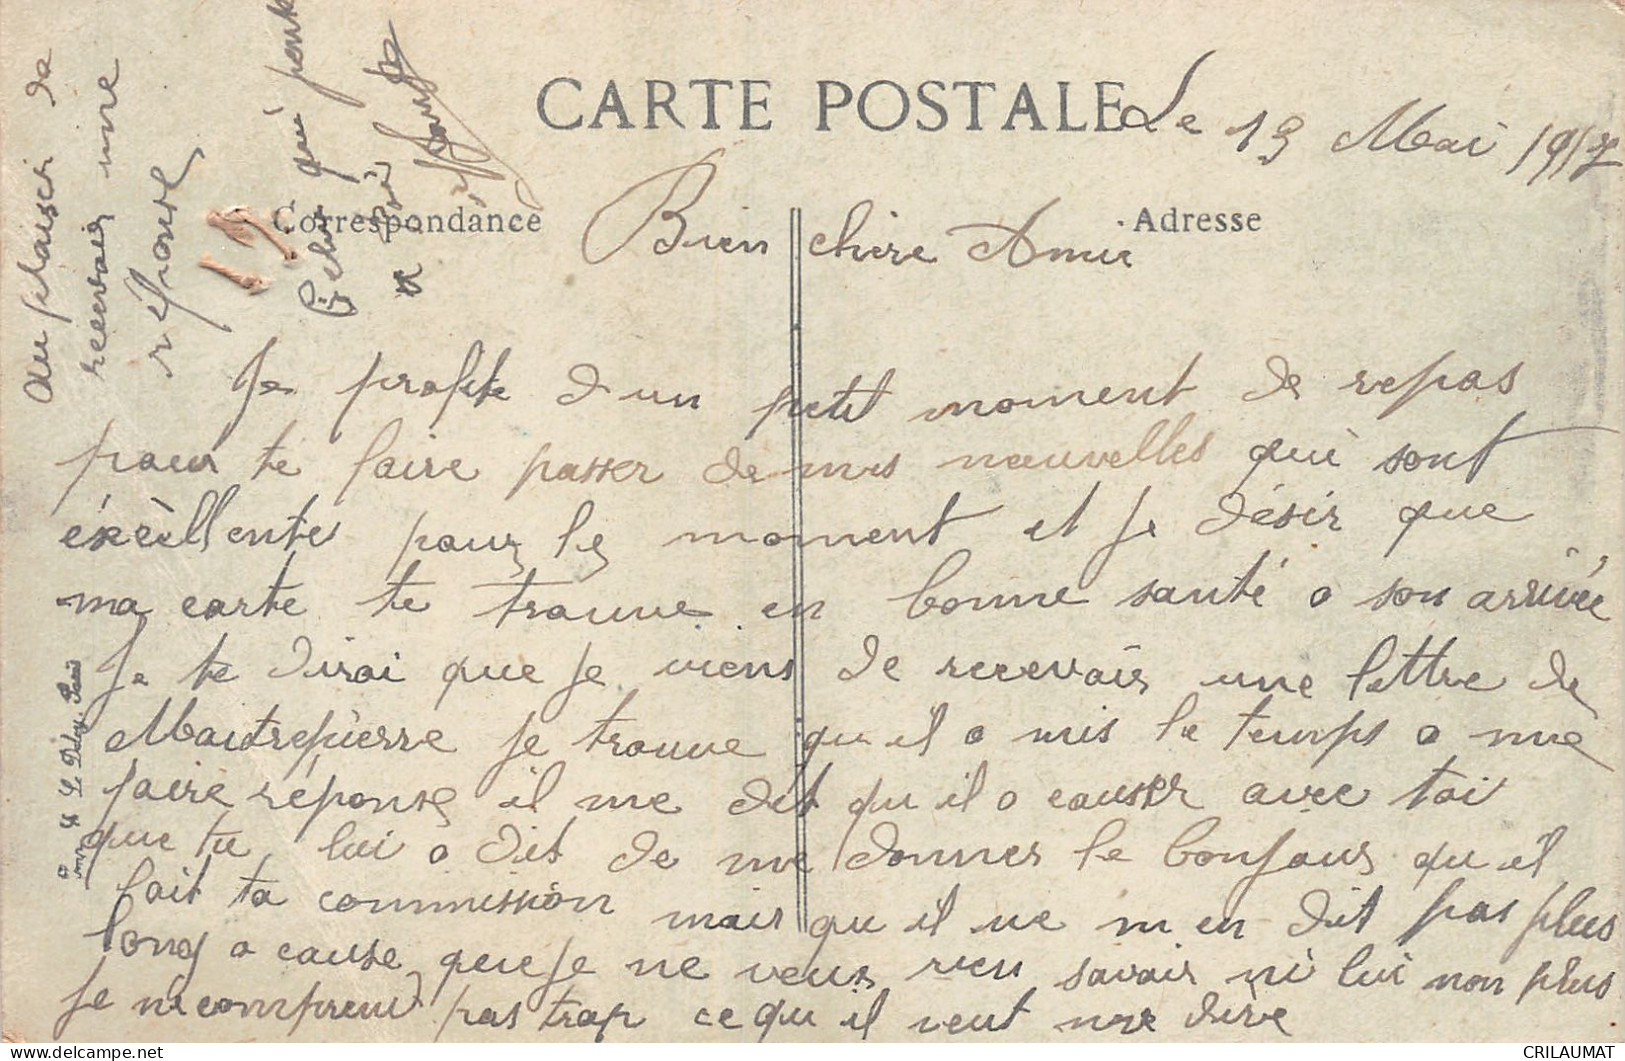 CARTE POSTALE
Le 19 Mai 1917
Correspondance
Adresse
Bien chère Amie
Je profite d un petit moment de repas
pour te faire passer de mes nouvelles qui sont
éxcèllente pour le moment et je désir que
ma carte te trouve en bonne santé a son arrivée
Je te dirai que je viens de recevoir une lettre de
Mautrepierre je trouve qu il a mis le temps a me
faire réponse il me dit qu il a causer avec toi
que tu lui a dit de me donner le bonjour qu il
fait ta commission mais qu il ne m en dit pas plus
long a cause que je ne veux rien savoir ni lui non plus
je ne comprend pas trop ce qu il veut me dire
au plaisir de
recevoir une
réponse
qui
a toi
Imp. Le Deley, Paris
CRILAUMAT